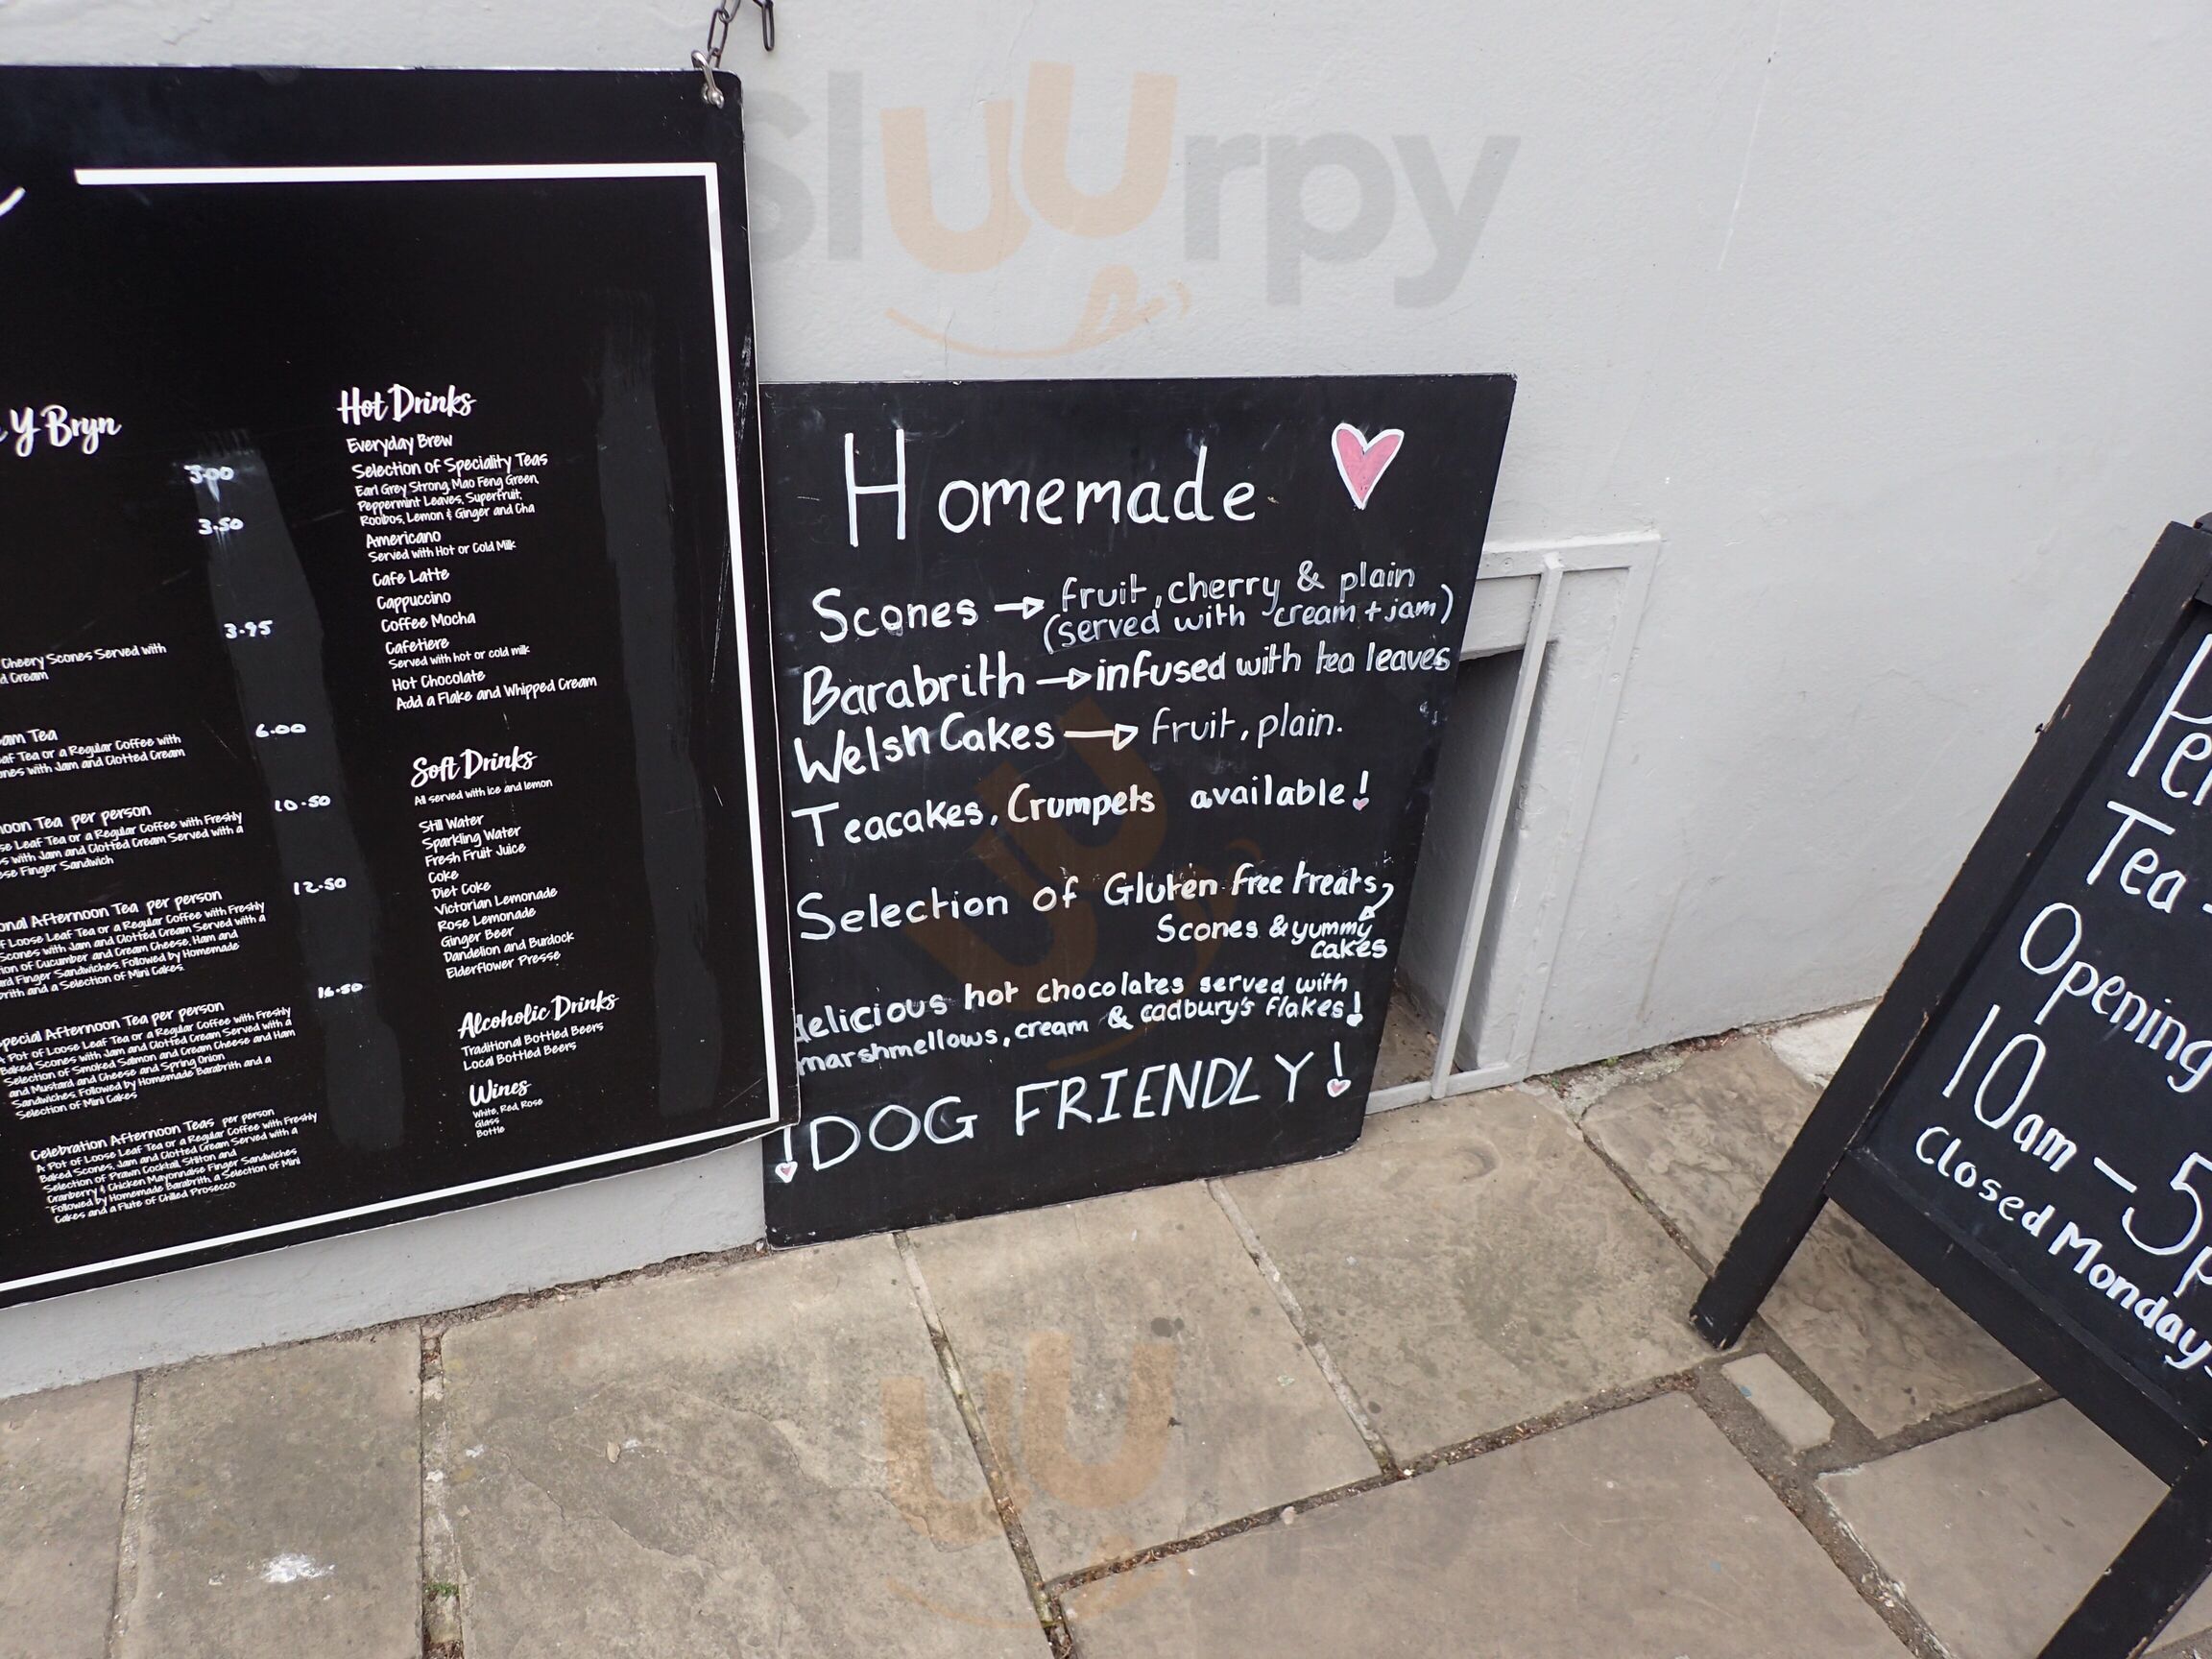 Sluurpy
Y Bryn
3.00
3.50
3.95
Cheery Scones Served with
Cream
6.00
am Tea
af Tea or a Regular Coffee with
nes with Jam and Clotted Cream
10.50
noon Tea per person
se Leaf Tea or a Regular Coffee with Freshly
s with Jam and Clotted Cream Served with a
ese Finger Sandwich
12.50
onal Afternoon Tea per person
f Loose Leaf Tea or a Regular Coffee with Freshly
Scones with Jam and Clotted Cream Served with a
ion of Cucumber and Cream Cheese, Ham and
rd Finger Sandwiches. Followed by Homemade
brith and a Selection of Mini Cakes.
16.50
pecial Afternoon Tea per person
A Pot of Loose Leaf Tea or a Regular Coffee with Freshly
Baked Scones with Jam and Clotted Cream Served with a
Selection of Smoked Salmon and Cream Cheese and Ham
and Mustard and Cheese and Spring Onion
Sandwiches. Followed by Homemade Barabrith and a
Selection of Mini Cakes
Celebration Afternoon Teas per person
A Pot of Loose Leaf Tea or a Regular Coffee with Freshly
Baked Scones, Jam and Clotted Cream Served with a
Selection of Prawn Cocktail, Stilton and
Cranberry & Chicken Mayonnaise Finger Sandwiches
Followed by Homemade Barabrith, a Selection of Mini
Cakes and a Flute of Chilled Prosecco
Hot Drinks
Everyday Brew
Selection of Speciality Teas
Earl Grey Strong, Mao Feng Green,
Peppermint Leaves, Superfruit,
Rooibos, Lemon & Ginger and Cha
Americano
Served with Hot or Cold Milk
Cafe Latte
Cappuccino
Coffee Mocha
Cafetiere
Served with hot or cold milk
Hot Chocolate
Add a Flake and Whipped Cream
Soft Drinks
All served with ice and lemon
Still Water
Sparkling Water
Fresh Fruit Juice
Coke
Diet Coke
Victorian Lemonade
Rose Lemonade
Ginger Beer
Dandelion and Burdock
Elderflower Presse
Alcoholic Drinks
Traditional Bottled Beers
Local Bottled Beers
Wines
White, Red, Rose
Glass
Bottle
Homemade
Scones → fruit, cherry & plain
(served with cream + jam)
Barabrith → infused with tea leaves
Welsh Cakes → fruit, plain.
Teacakes, Crumpets available!
Selection of Gluten free treats
Scones & yummy
cakes
delicious hot chocolates served with
marshmellows, cream & cadbury's flakes!
!DOG FRIENDLY!
Pe
Tea
Opening
10am - 5p
Closed Monday